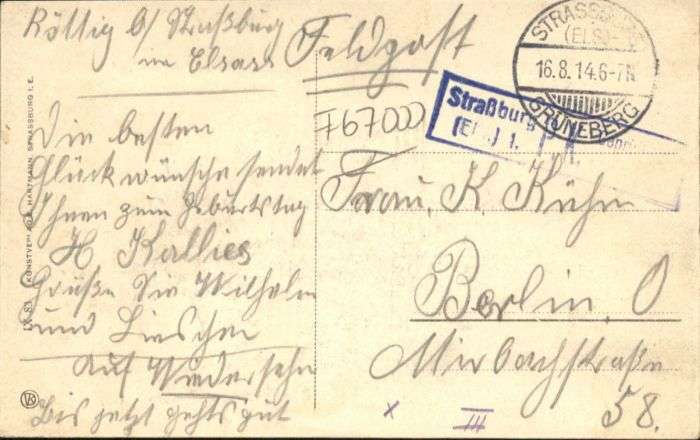 Röttig b/ Straßburg
im Elsass
Die besten
Glückwünsche sendet
Ihnen zum Geburtstag
H Kallies
Grüße Sie Wilhelm
und Lieschen
Auf Wiedersehn
Bis jetzt gehts gut
Feldpost
767000
Straßburg
(Els.) 1.
STRASSBURG
(ELS)
16.8.14.6-7N
GRÜNEBERG
Frau, K. Kühn
Berlin, O
Mirbachstraße
58.
x III
HARTMANN, STRASSBURG I. E.